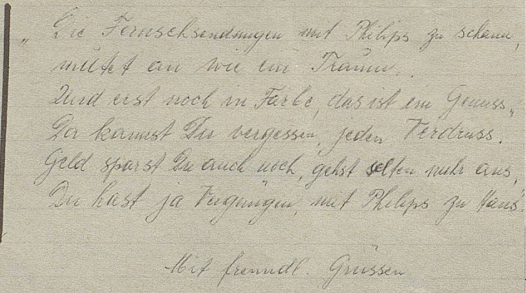 „Die Fernsehsendungen mit Philips zu schauen,
mutet an wie ein Traum.
Und erst noch in Farbe, das ist ein Genuss,
Da kannst Du vergessen, jeden Verdruss.
Geld sparst Du auch noch, gehst selten mehr aus,
Du hast ja Vergnügen, mit Philips zu Haus."
Mit freundl. Grüssen